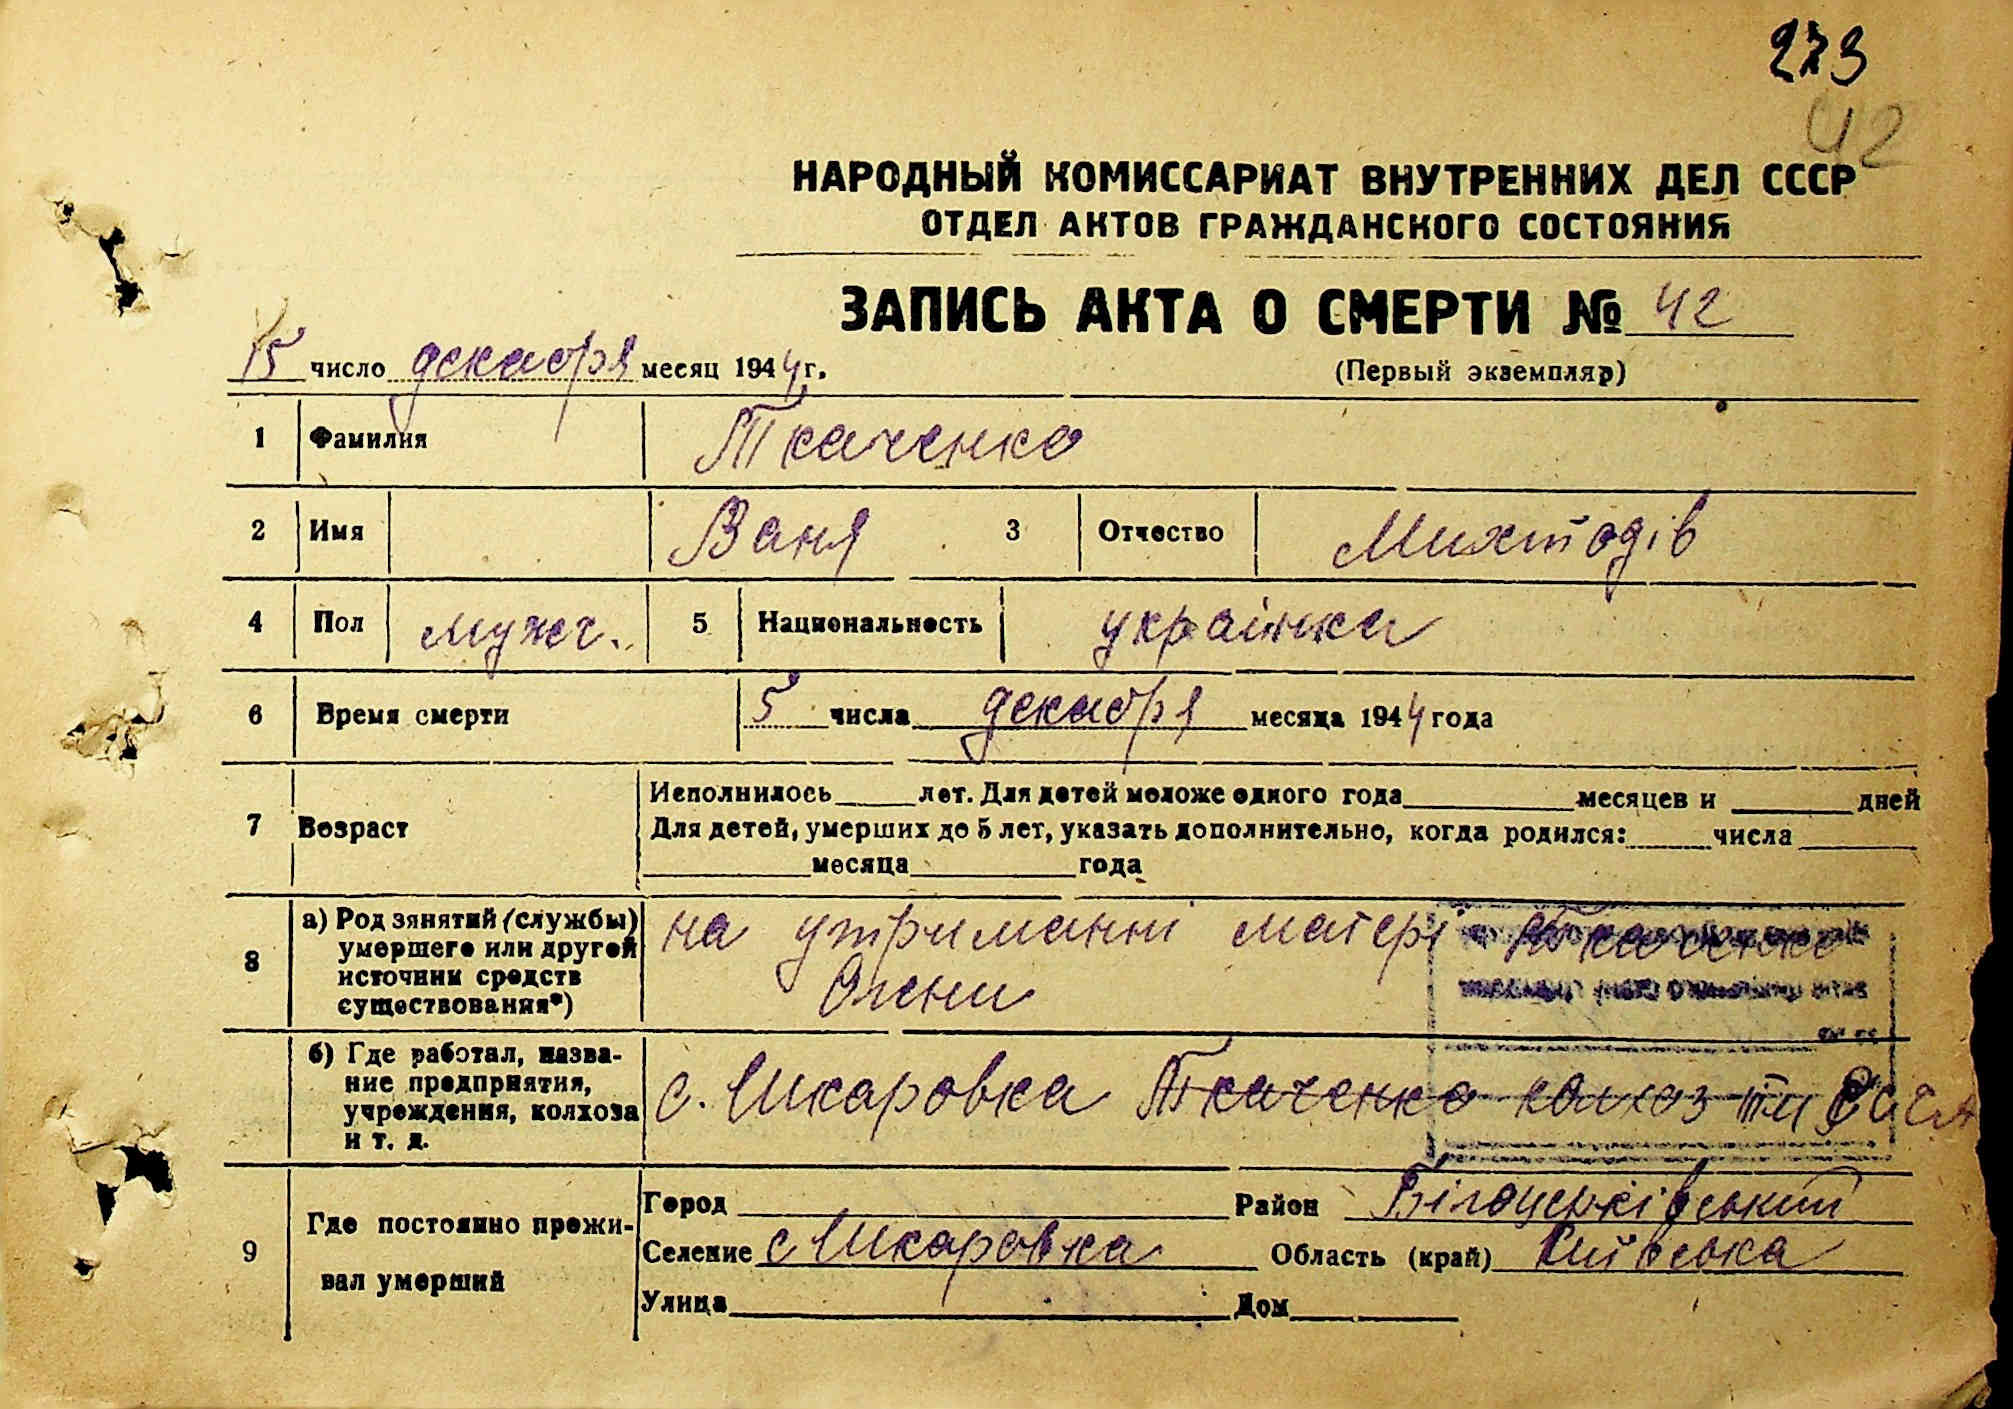 273
42
НАРОДНЫЙ КОМИССАРИАТ ВНУТРЕННИХ ДЕЛ СССР
ОТДЕЛ АКТОВ ГРАЖДАНСКОГО СОСТОЯНИЯ
ЗАПИСЬ АКТА О СМЕРТИ № 42
15 число декабря месяц 1944 г.
(Первый экземпляр)
1 Фамилия Ткаченко
2 Имя Ваня 3 Отчество
4 Пол мужч. 5 Национальность українка
6 Время смерти 5 числа декабря месяца 1944 года
7 Возраст Исполнилось лет. Для детей моложе одного года месяцев и дней
Для детей, умерших до 5 лет, указать дополнительно, когда родился: числа
месяца года
8 а) Род занятий (службы) умершего или другой источник средств существования*) на утриманні матері Ткаченко
Олени
б) Где работал, название предприятия, учреждения, колхоза и т. д. с. Шкаровка Ткаченко колхоз
9 Где постоянно проживал умерший
Город Район Білоцерківський
Селение с Шкаровка Область (край) Київська
Улица Дом